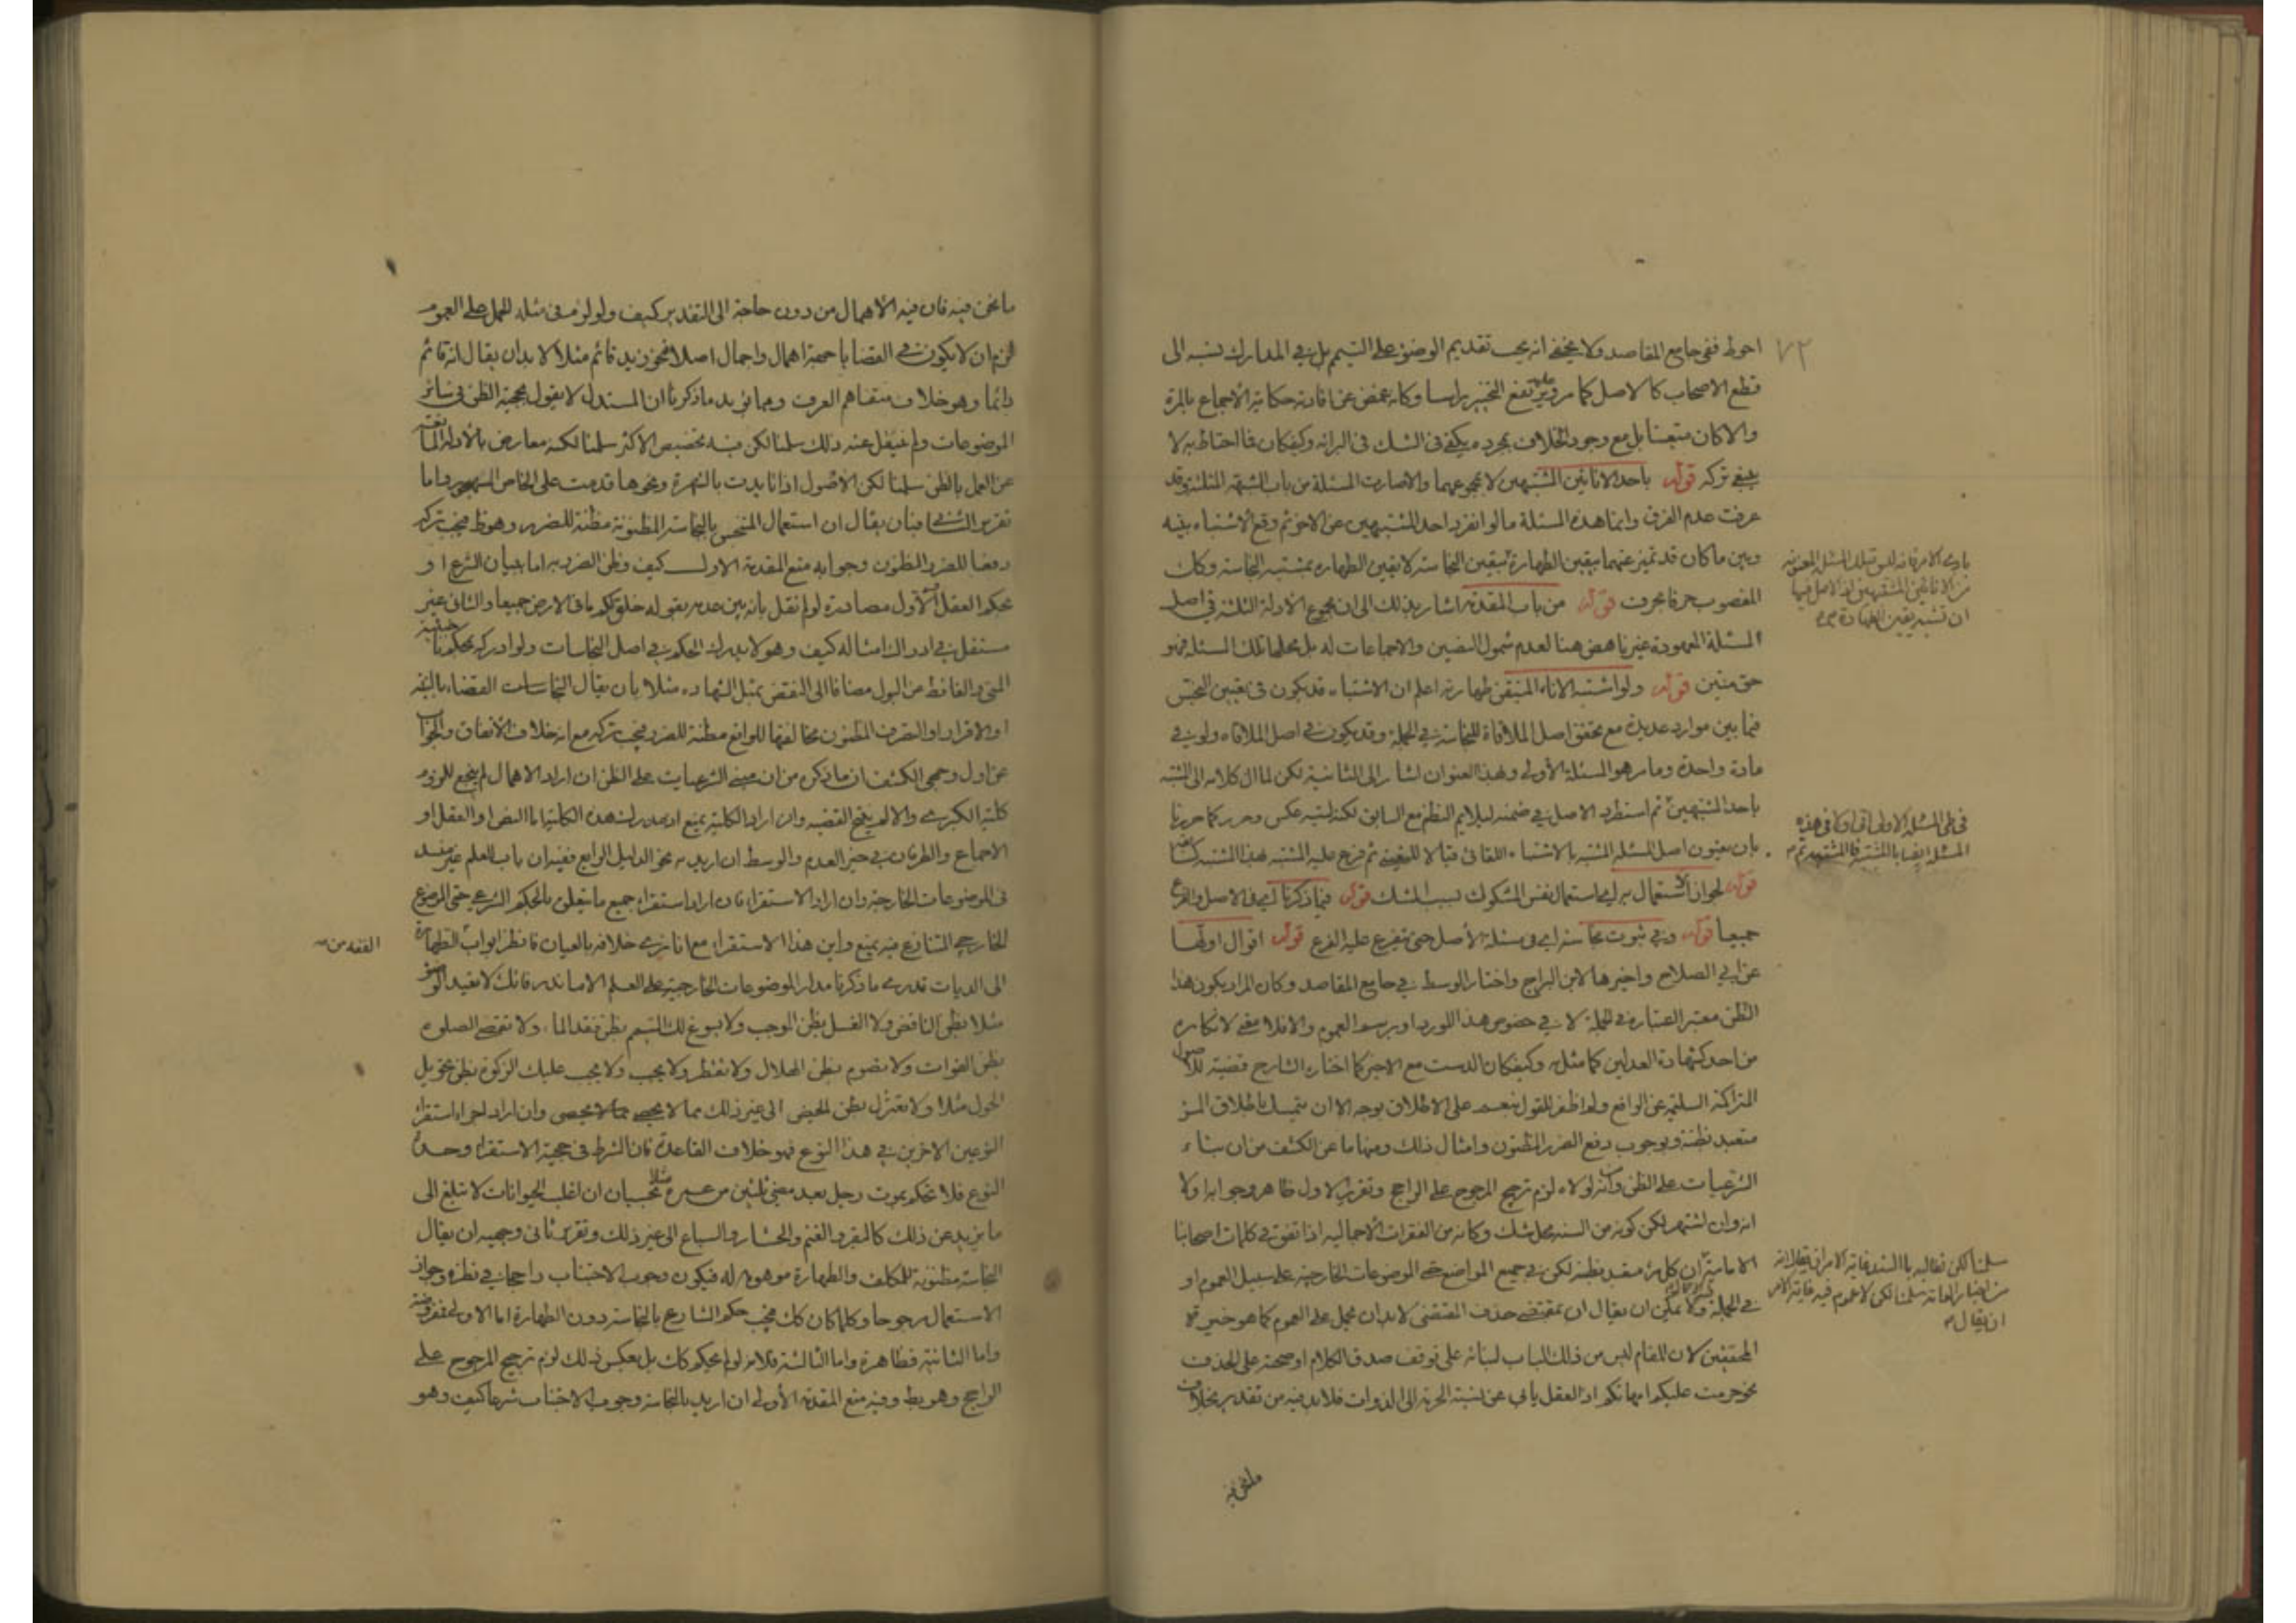 احوط ففي جامع المقاصد ولا يخفى انه يجب تقديم الوضوء على التيمم بل في المدارك نسبه الى
قطع الاصحاب كالاصل كما مر وبه يقع التخيير راسا وكانه غمض عن افادته حكاية الاجماع بالمرة
والا كان متعينا بل مع وجود الخلاف بمجرده يكفي في الشك في البرائه وكيفكان فالاحتياط به لا
ينبغي تركه قوله باحد الانائين المشتبهين لا بمجموعهما والا صارت المسئلة من باب الشبهه المثلثة وقد
عرفت عدم الفرق وانما هذه المسئلة ما لو انفرد احد المشتبهين عن الاخر ثم وقع الاشتباه بينه
وبين ما كان قد تميز عنهما بيقين الطهارة بيقين النجاسة لا يقين الطهاره بمشتبه النجاسة وكك
المغصوب حرفا بحرف قوله من باب المقدمة اشار بذلك الى ان مجموع الادلة الثلثة في اصل
المسئلة المعهودة غير ناهض هنا لعدم شمول النصين والاجماعات له بل محلها تلك المسئلة فهو
حق متين قوله ولو اشتبه الاناء المتيقن طهارته اعلم ان الاشتباه قد يكون في تعيين النجس
فيما بين موارد عديدة مع تحقق اصل الملاقاة للنجاسة في الجملة وقد يكون في اصل الملاقاه ولو في
مادة واحدة وما مر هو المسئلة الأولى وبهذا العنوان اشار الى الثانية لكن لما ال كلامه الى المشتبه
باحد المشتبهين ثم استطرد الاصل في ضمنه ليلايم النظم مع السابق لكنه ليته عكس وحرر كما حررنا
بان يعنون اصل المسئله المشتبه بالاشتباه التلقائي قبالا للتعيينى ثم فرع عليه المشتبه بهذا المشتبه
قوله لجواز الاستعمال به اي استعمال نفس المشكوك بسبب الشك قوله فيما ذكرنا اي في الاصل والفرع
جميعا قوله وفي ثبوت نجاسة اي في مسئلة الأصل حتى يتفرع عليه الفرع قوله اقوال اولها
عن ابي الصلاح واخيرها لابن البراج واختار الوسط في جامع المقاصد وكان المراد بكون هذا
الظن معتبر اعتباره في الجملة لا في خصوص هذا المورد او برسم العموم والا فلا معنى لانكاره
من احد كشهادة العدلين كما مثل به وكيفكان الدست مع الاخير كما اختاره الشارح قضية للاصول
المتراكمة السليمة عن الرافع ولم اظفر للقول بنعم على الاطلاق بوجه الا ان يتمسك باطلاق المرء
متعبد بظنه وبوجوب دفع الضرر المظنون وامثال ذلك ومنها ما عن الكشف من ان بناء
الشرعيات على الظن وانه لولاه لزم ترجيح المرجوح على الراجح وتقرير الاول ظاهر وجوابه اولا
انه وان اشتهر لكن كونه من السنه محل شك وكانه من الفقرات الأجماليه اذا تفق في كلمات اصحابنا
الامامية ان كل مرء متعبد بظنه لكن في جميع المواضع حتى الموضوعات الخارجية على سبيل العموم او
في الجملة ولا يمكن ان يقال ان بمقتضى حذف المقتضى لا بد ان يحمل على العموم كما هو خيرة
المحققين لان المقام ليس من ذلك الباب لبنائه على توقف صدق الكلام او صحته على الحذف
نحو حرمت عليكم امهاتكم اذ العقل يابى عن نسبة الحرمة الى الذوات فلا بد فيه من تقدير بخلاف
ما نحن فيه
بادى الامر فانه
من الانائين المشتبهين اذ الاصل فيها
ان تشبه يقين الطهارة صح
في طى المسئلة الاولى
المسئلة ايضا بالمشتبه فالمشتبه ثم
سلمنا لكن نطالبه بالسند وغاية الامر
سلمنا لكن لا عموم فيه غاية الامر
ان يقال
ما نحن فيه فان فيه الأهمال من دون حاجة الى التقدير كيف ولو لزم في مثله الحمل على العموم
لزم ان لا يكون في القضايا جهة اهمال واجمال اصلا فنحو زيد قائم مثلا لا بد ان يقال انه قائم
دائما وهو خلاف متفاهم العرف ومما يؤيد ما ذكرنا ان المستدل لا يقول بحجية الظن في سائر
الموضوعات ولم ينقل عنه ذلك سلمنا لكن فيه تخصيص الاكثر سلمنا لكنه معارض بالأدلة المانعة
عن العمل بالظن سلمنا لكن الأصول اذا تايدت بالشهرة ونحوها قدمت على الخاص المهجور واما
تقرير الثاني فبان يقال ان استعمال المتنجس بالنجاسة المظنونة مظنة للضرر وهو ظ فيجب تركه
دفعا للضرر المظنون وجوابه منع المقدمة الاولى كيف وظن الضرر به اما ببيان الشرع او
بحكم العقل الأول مصادرة لو لم نقل بانه بين عدمه بقوله خلق لكم ما في الارض جميعا والثاني غير
مستقل في ادراك امثاله كيف وهو لا يدرك الحكم في اصل النجاسات ولو ادركه بحكم
المني والغائط من البول مضافا الى النقض بمثل الشهاده مثلا بان يقال القضاء بالبينة
او الاقرار او التصرف المظنون مخالفتها للواقع مظنة للضرر فيجب تركه مع انه خلاف الاتفاق والجواب
عن اول وجهى الكشف ان ما ذكر من ان مبنى الشرعيات على الظن ان اراد الاهمال لم ينجع للزوم
كلية الكبرى والا لم ينتج القضيه وان اراد الكلية يمنع اذ مدرك هذه الكلية اما النص او العقل او
الاجماع والطرفان في حيز العدم والوسط ان اريد به نحو الدليل الرابع ففيه ان باب العلم غير منسد
في الموضوعات الخارجية وان اراد الاستقراء فان اراد استقراء جميع ما يتعلق بالحكم الشرعي حتى الموضوع
الخارجي المتنازع فيه يمنع واين هذا الاستقراء مع انا نرى خلافه بالعيان فانظر ابواب الفقه من الطهارة
الى الديات تدرى ما ذكرنا مدار الموضوعات الخارجية على العلم الا ما ندر فانك لا تعيد الوضوء
مثلا بظن الناقض ولا الغسل بظن الموجب ولا يسوغ لك التيمم بظن فقد الماء ولا تقضى الصلوة
بظن الفوات ولا تصوم بظن الهلال ولا تفطر ولا يجب عليك الزكوة بظن تحويل
الحول مثلا ولا تعتزل بظن الحيض الى غير ذلك مما لا يحصى وان اراد اجراء استقراء
النوعين الاخرين في هذا النوع فهو خلاف القاعدة فان الشرط في حجية الاستقراء وحدة
النوع فلا نحكم بموت رجل بعد مضي ثلثين من عمره مثلا بحسبان ان اغلب الحيوانات لا تبلغ الى
ما يزيد عن ذلك كالبقر والغنم والحشار والسباع الى غير ذلك وتقرير ثاني وجهيه ان يقال
النجاسة مظنونة للمكلف والطهارة موهومة له فيكون وجوب الاجتناب راجحا في نظره وجواز
الاستعمال مرجوحا وكلما كان كك فيجب حكم الشارع بالنجاسة دون الطهارة اما الاولى فمفروضة
واما الثانية فظاهرة واما الثالثة فلانه لو لم يحكم كك بل بعكس ذلك لزم ترجيح المرجوح على
الراجح وهو بط وفيه منع المقدمة الأولى ان اريد بالنجاسة وجوب الاجتناب شرعا كيف وهو
الفقه من